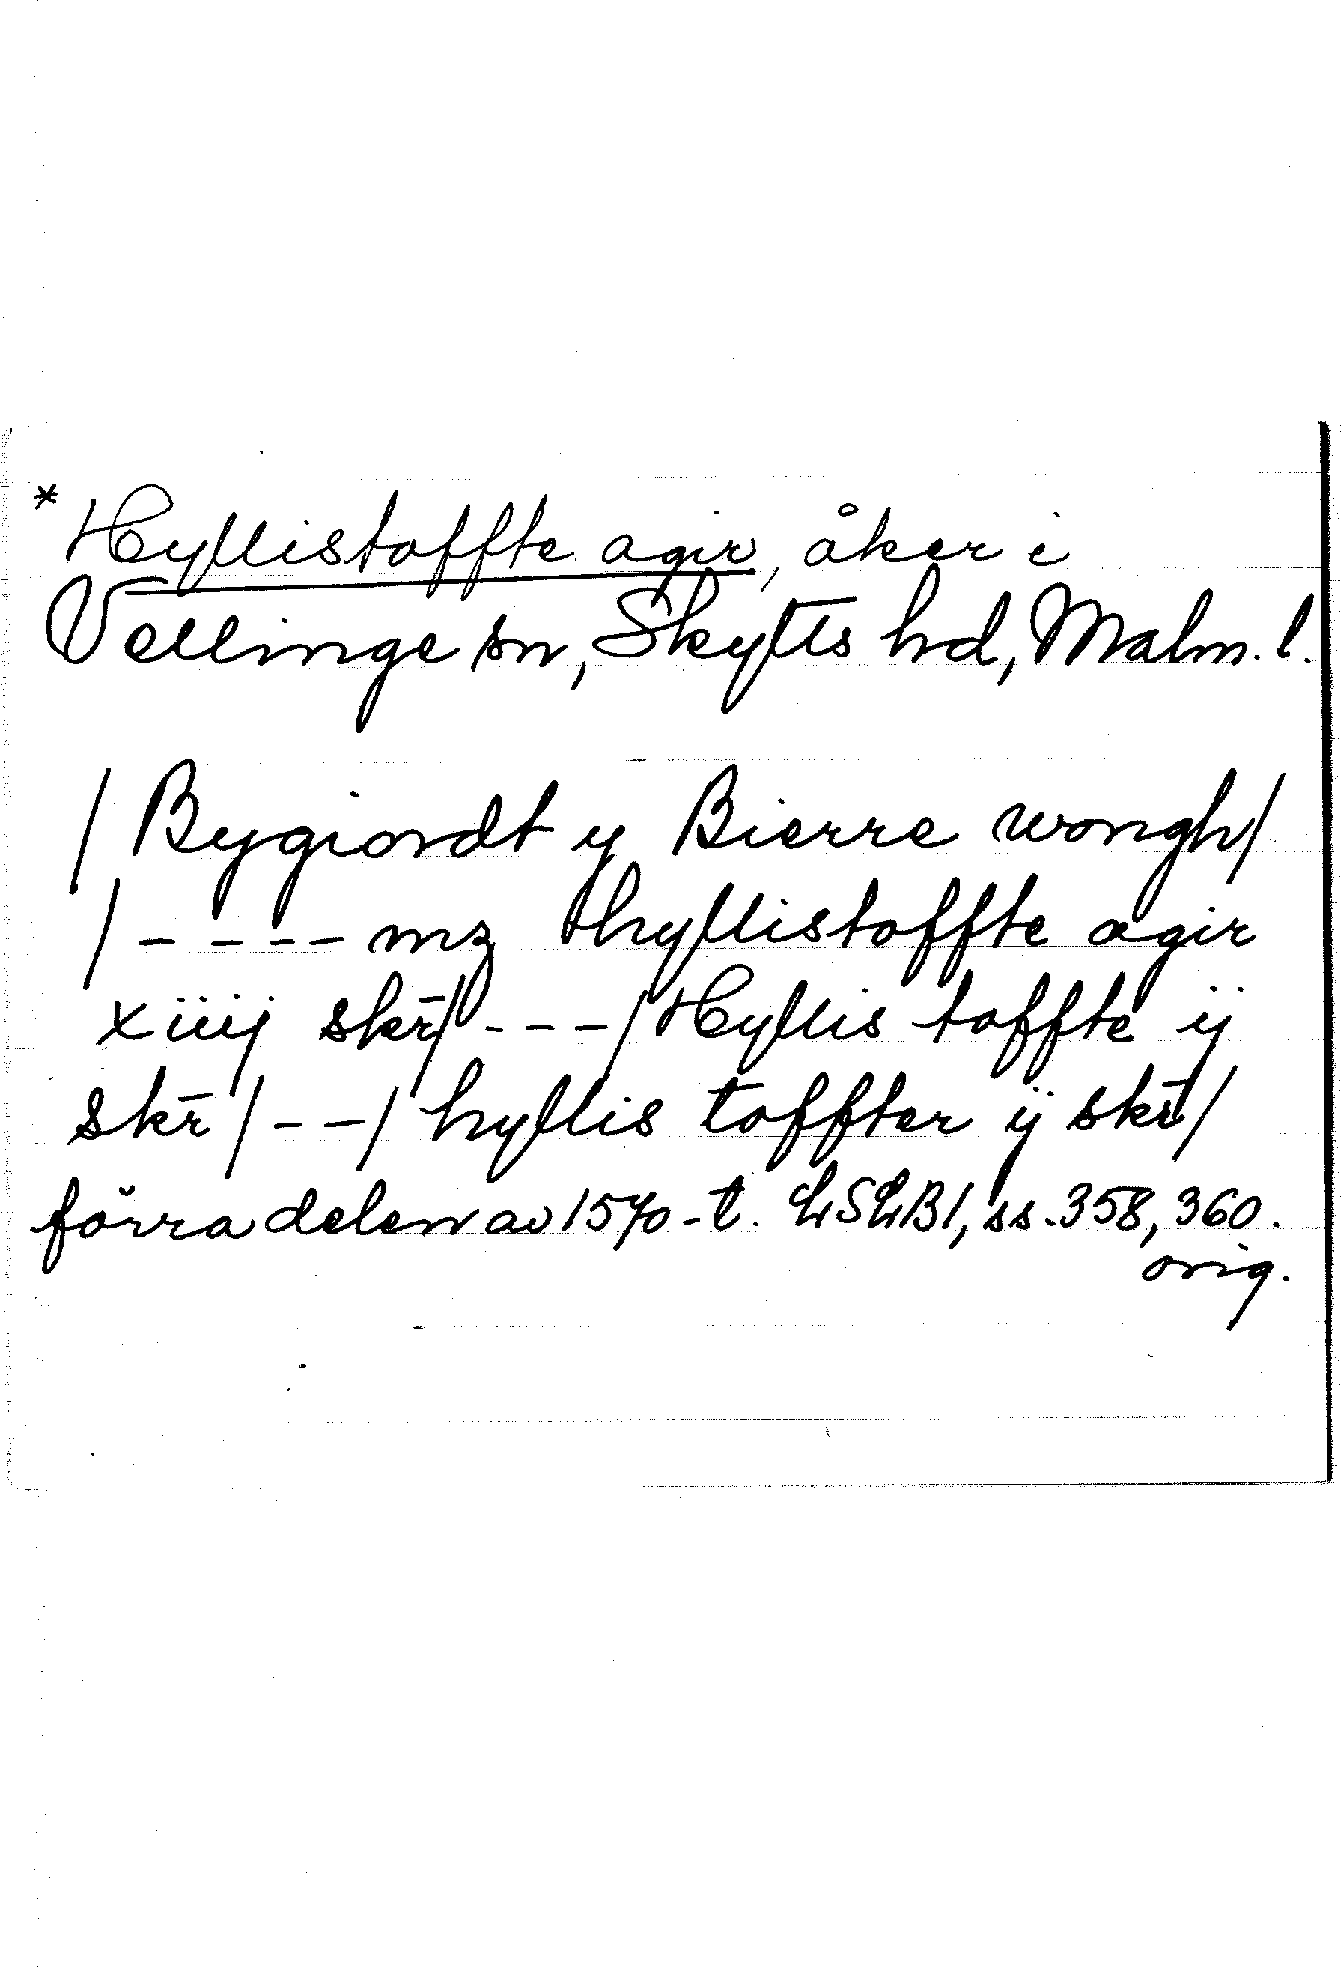 * Hyllistoffte agir, åker i
Vellinge sn, Skytts hd, Malm. l.
/ Bygiordt y Bierre wongh/
/ - - - - mz hyllistoffte agir
xiiij skr̄/ - - - / Hyllis toffte ij
skr̄ / - - / hyllis toffter ij skr̄/
förra delen av 1570-t. LSLB1, ss. 358, 360.
orig.